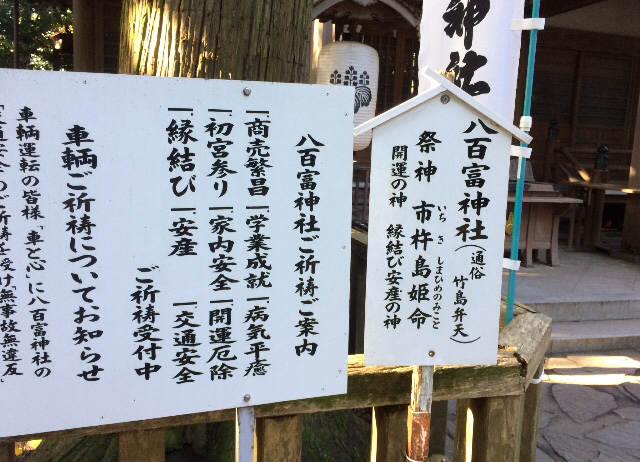 神社
八百富神社(通俗 竹島弁天)
祭神 市杵島姫命
いちきしまひめのみこと
開運の神 縁結び安産の神
八百富神社ご祈祷ご案内
一、商売繁昌 一、学業成就 一、病気平癒
一、初宮参り 一、家内安全 一、開運厄除
一、縁結び 一、安産 一、交通安全
ご祈祷受付中
車輌ご祈祷についてお知らせ
車輌運転の皆様「車と心」に八百富神社の
のご祈祷を受け「無事故無違反」